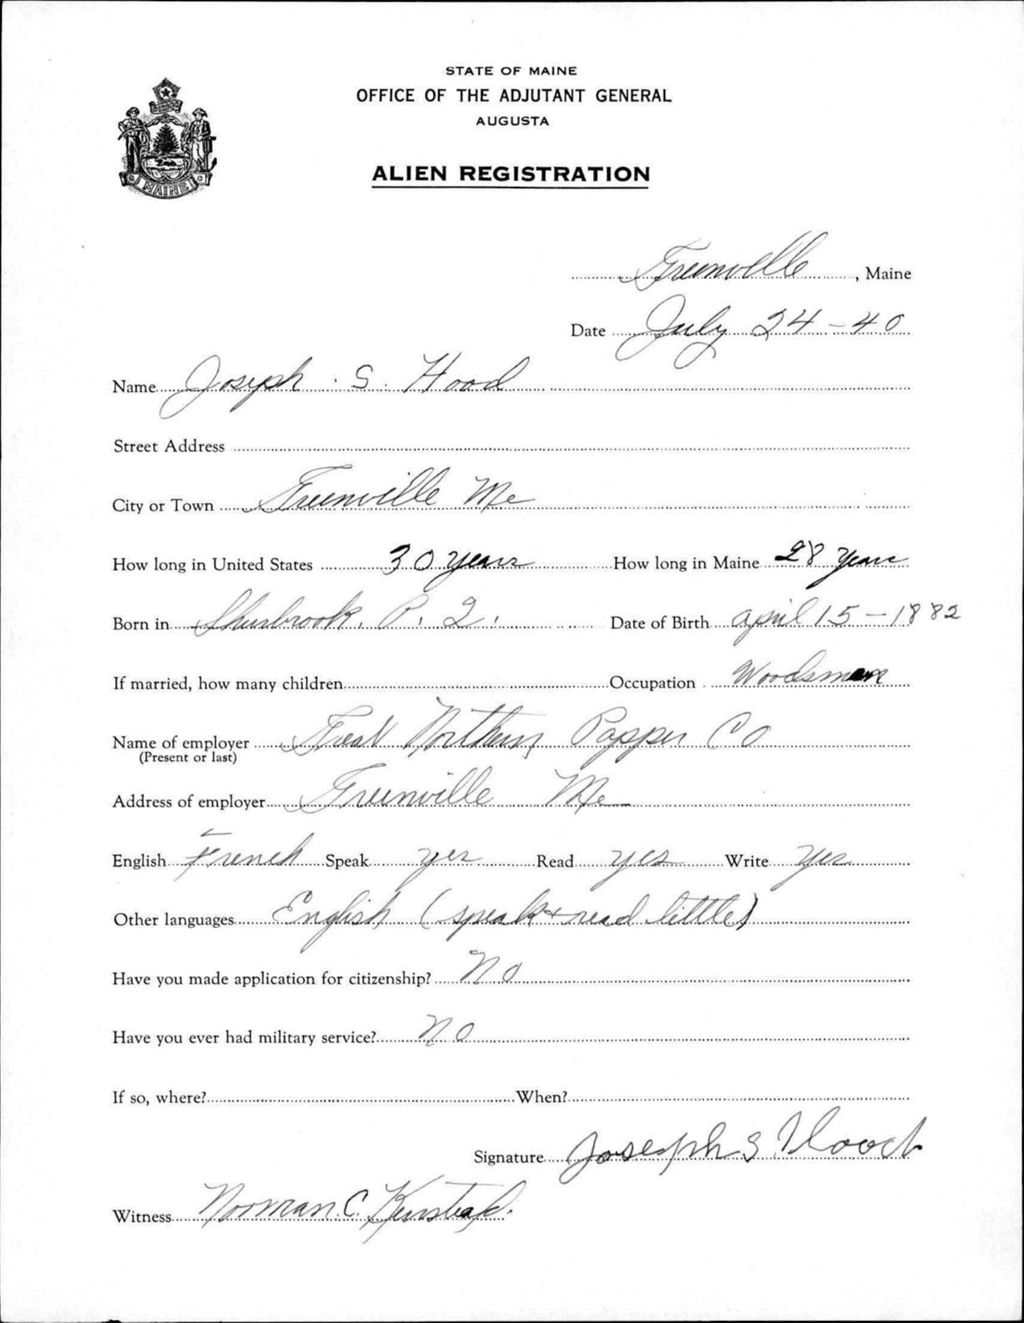 STATE OF MAINE
OFFICE OF THE ADJUTANT GENERAL
AUGUSTA
ALIEN REGISTRATION
MAINE
Greenville, Maine
Date July 24-40
Name Joseph S. Hood
Street Address
City or Town Greenville Me
How long in United States 30 years How long in Maine 28 years
Born in Sherbrook, P. Q. Date of Birth april 15-1882
If married, how many children Occupation Woodsman
Name of employer Great Northern Papper Co
(Present or last)
Address of employer Greenville Me
English French Speak yes Read yes Write yes
Other languages English (speak + read little)
Have you made application for citizenship? No
Have you ever had military service? No
If so, where? When?
Signature Joseph S Hood
Witness Norman C.